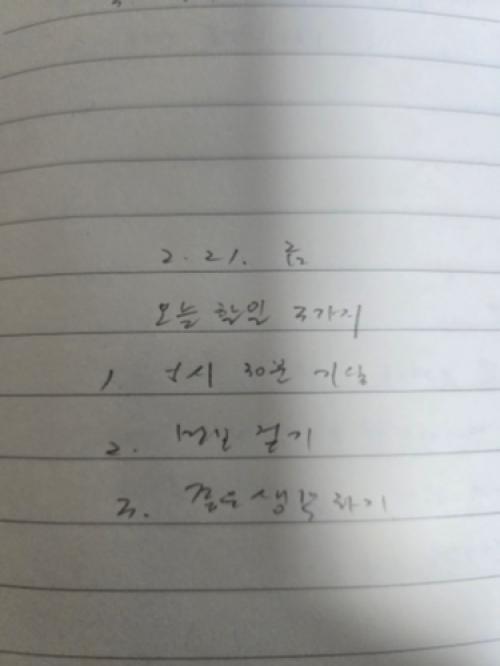 2.21. 금
오늘 할일 3가지
1. 5시 30분 기상
2. 걷기
3. 좋은생각 하기